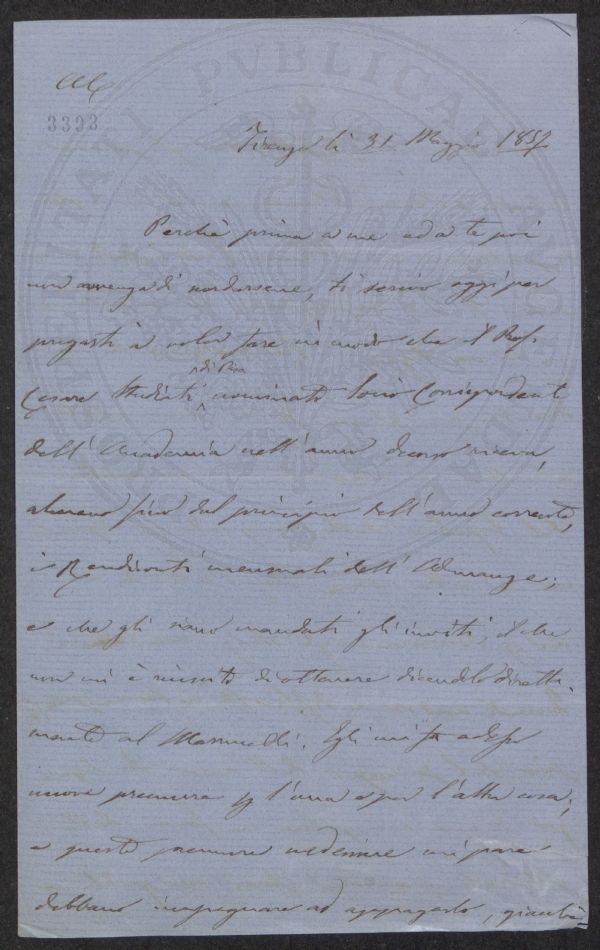 3393
Firenze li 31 Maggio 1857
Perchè prima a me ed a te poi
non avvenga di scordarsene, ti scrivo oggi per
pregarti a voler fare in modo che il Prof.
di Pisa
Cesare Studiati nominato Socio Corrispondente
dell'Accademia nell'anno decorso riceva,
almeno fino dal principio dell'anno corrente,
i Rendiconti mensuali dell'Adunanze;
e che gli siano mandati gli inviti, il che
non mi è riuscito di ottenere dicendolo diretta-
mente al . Egli mi fa adesso
nuove premure per l'una e per l'altra cosa;
e queste premure medesime mi pare
debbano impegnare ad appagarlo, giacchè